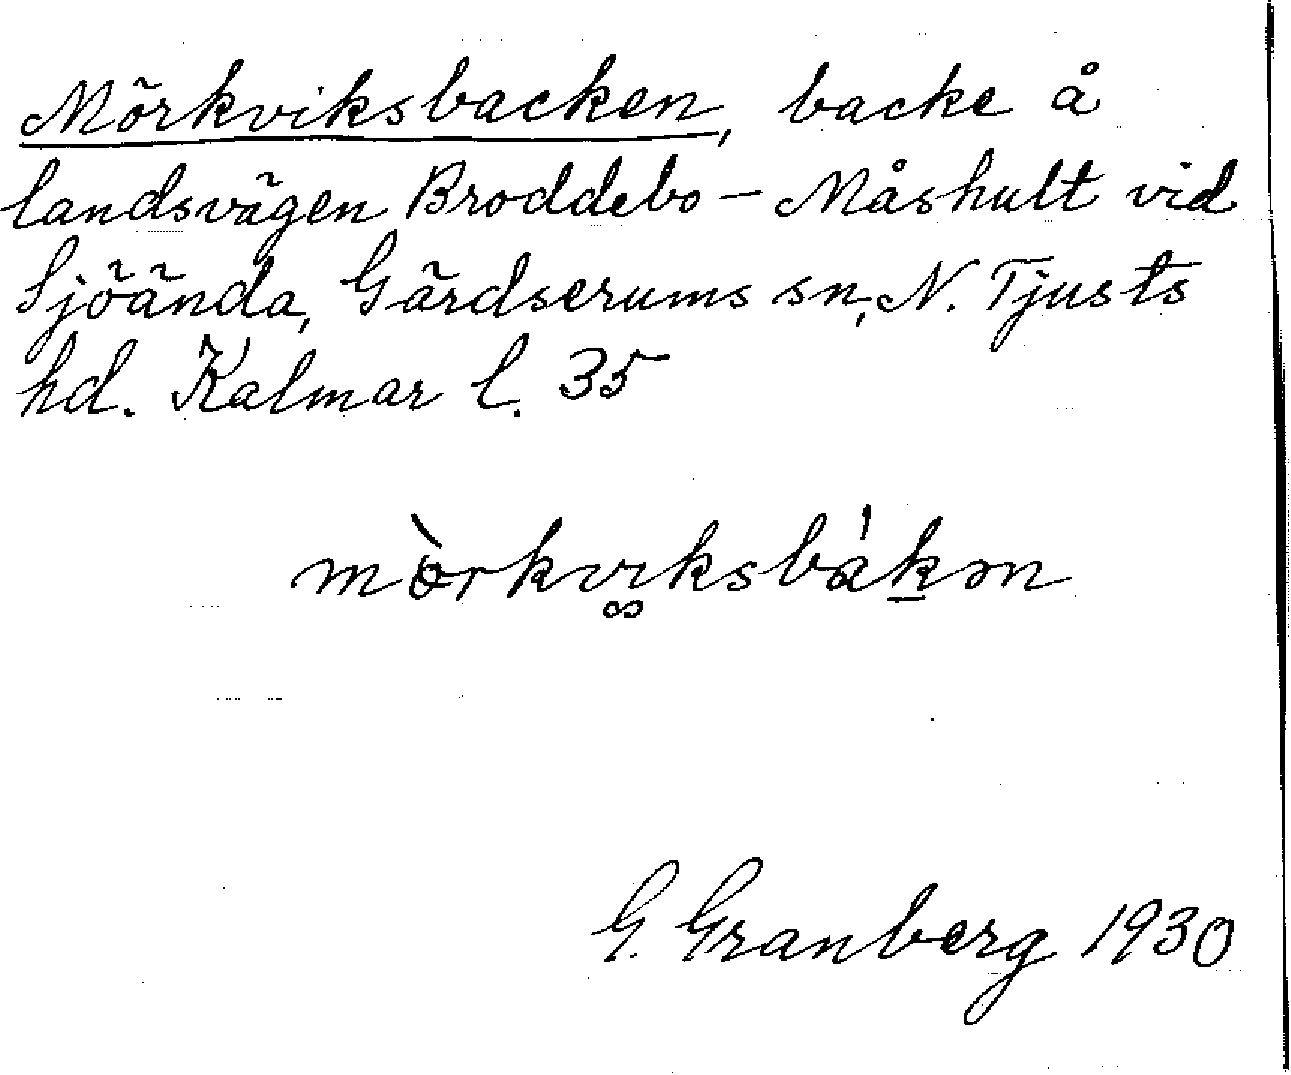 Mörkviksbacken, backe å
landsvägen Broddebo – Måshult vid
Sjöända, Gärdserums sn, N. Tjusts
hd. Kalmar l. 35
mörkviksbákən
G. Granberg 1930